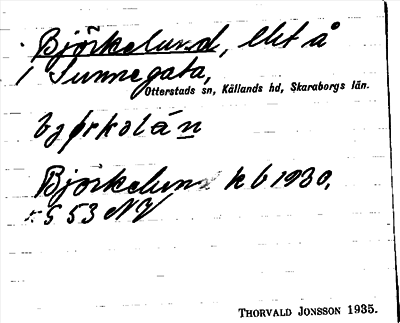 Björkelund, lht å
/ Sunnegata,
Otterstads sn, Kållands hd, Skaraborgs län.
Björkelund kb 1930,
53 NV
THORVALD JONSSON 1935.